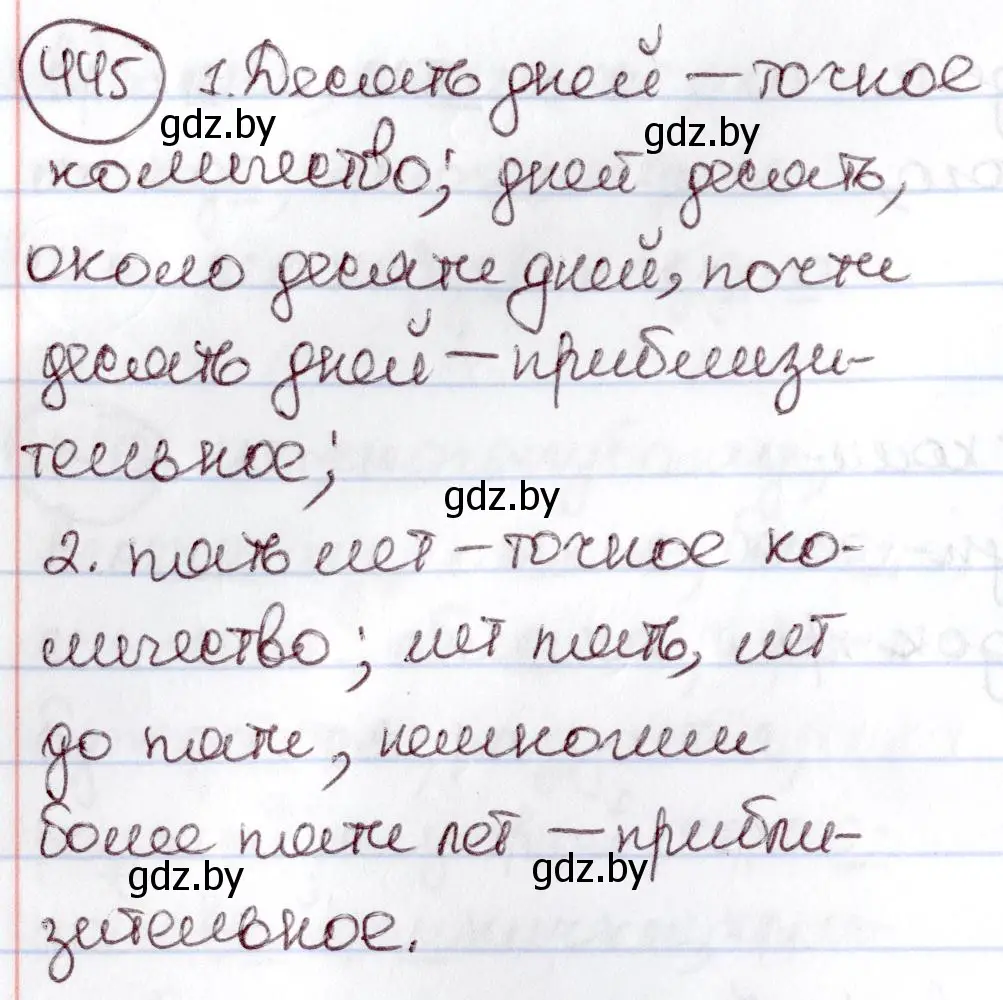 445 1. Десять дней – точное
gdz.by gdz.by
количество; дней десять,
около десяти дней, почти
десять дней – приблизи-
тельное;
gdz.by
2. пять лет – точное ко-
личество; лет пять, лет
до пяти, немногим
более пяти лет – прибли-
gdz.by gdz.by
зительное.